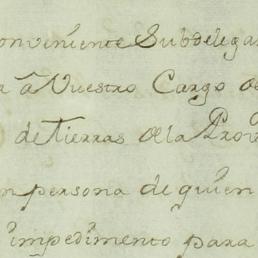 conveniente Subdelegar
a â Vuestro Cargo de
de tierras de la Prov
n persona de quien
impedimento para